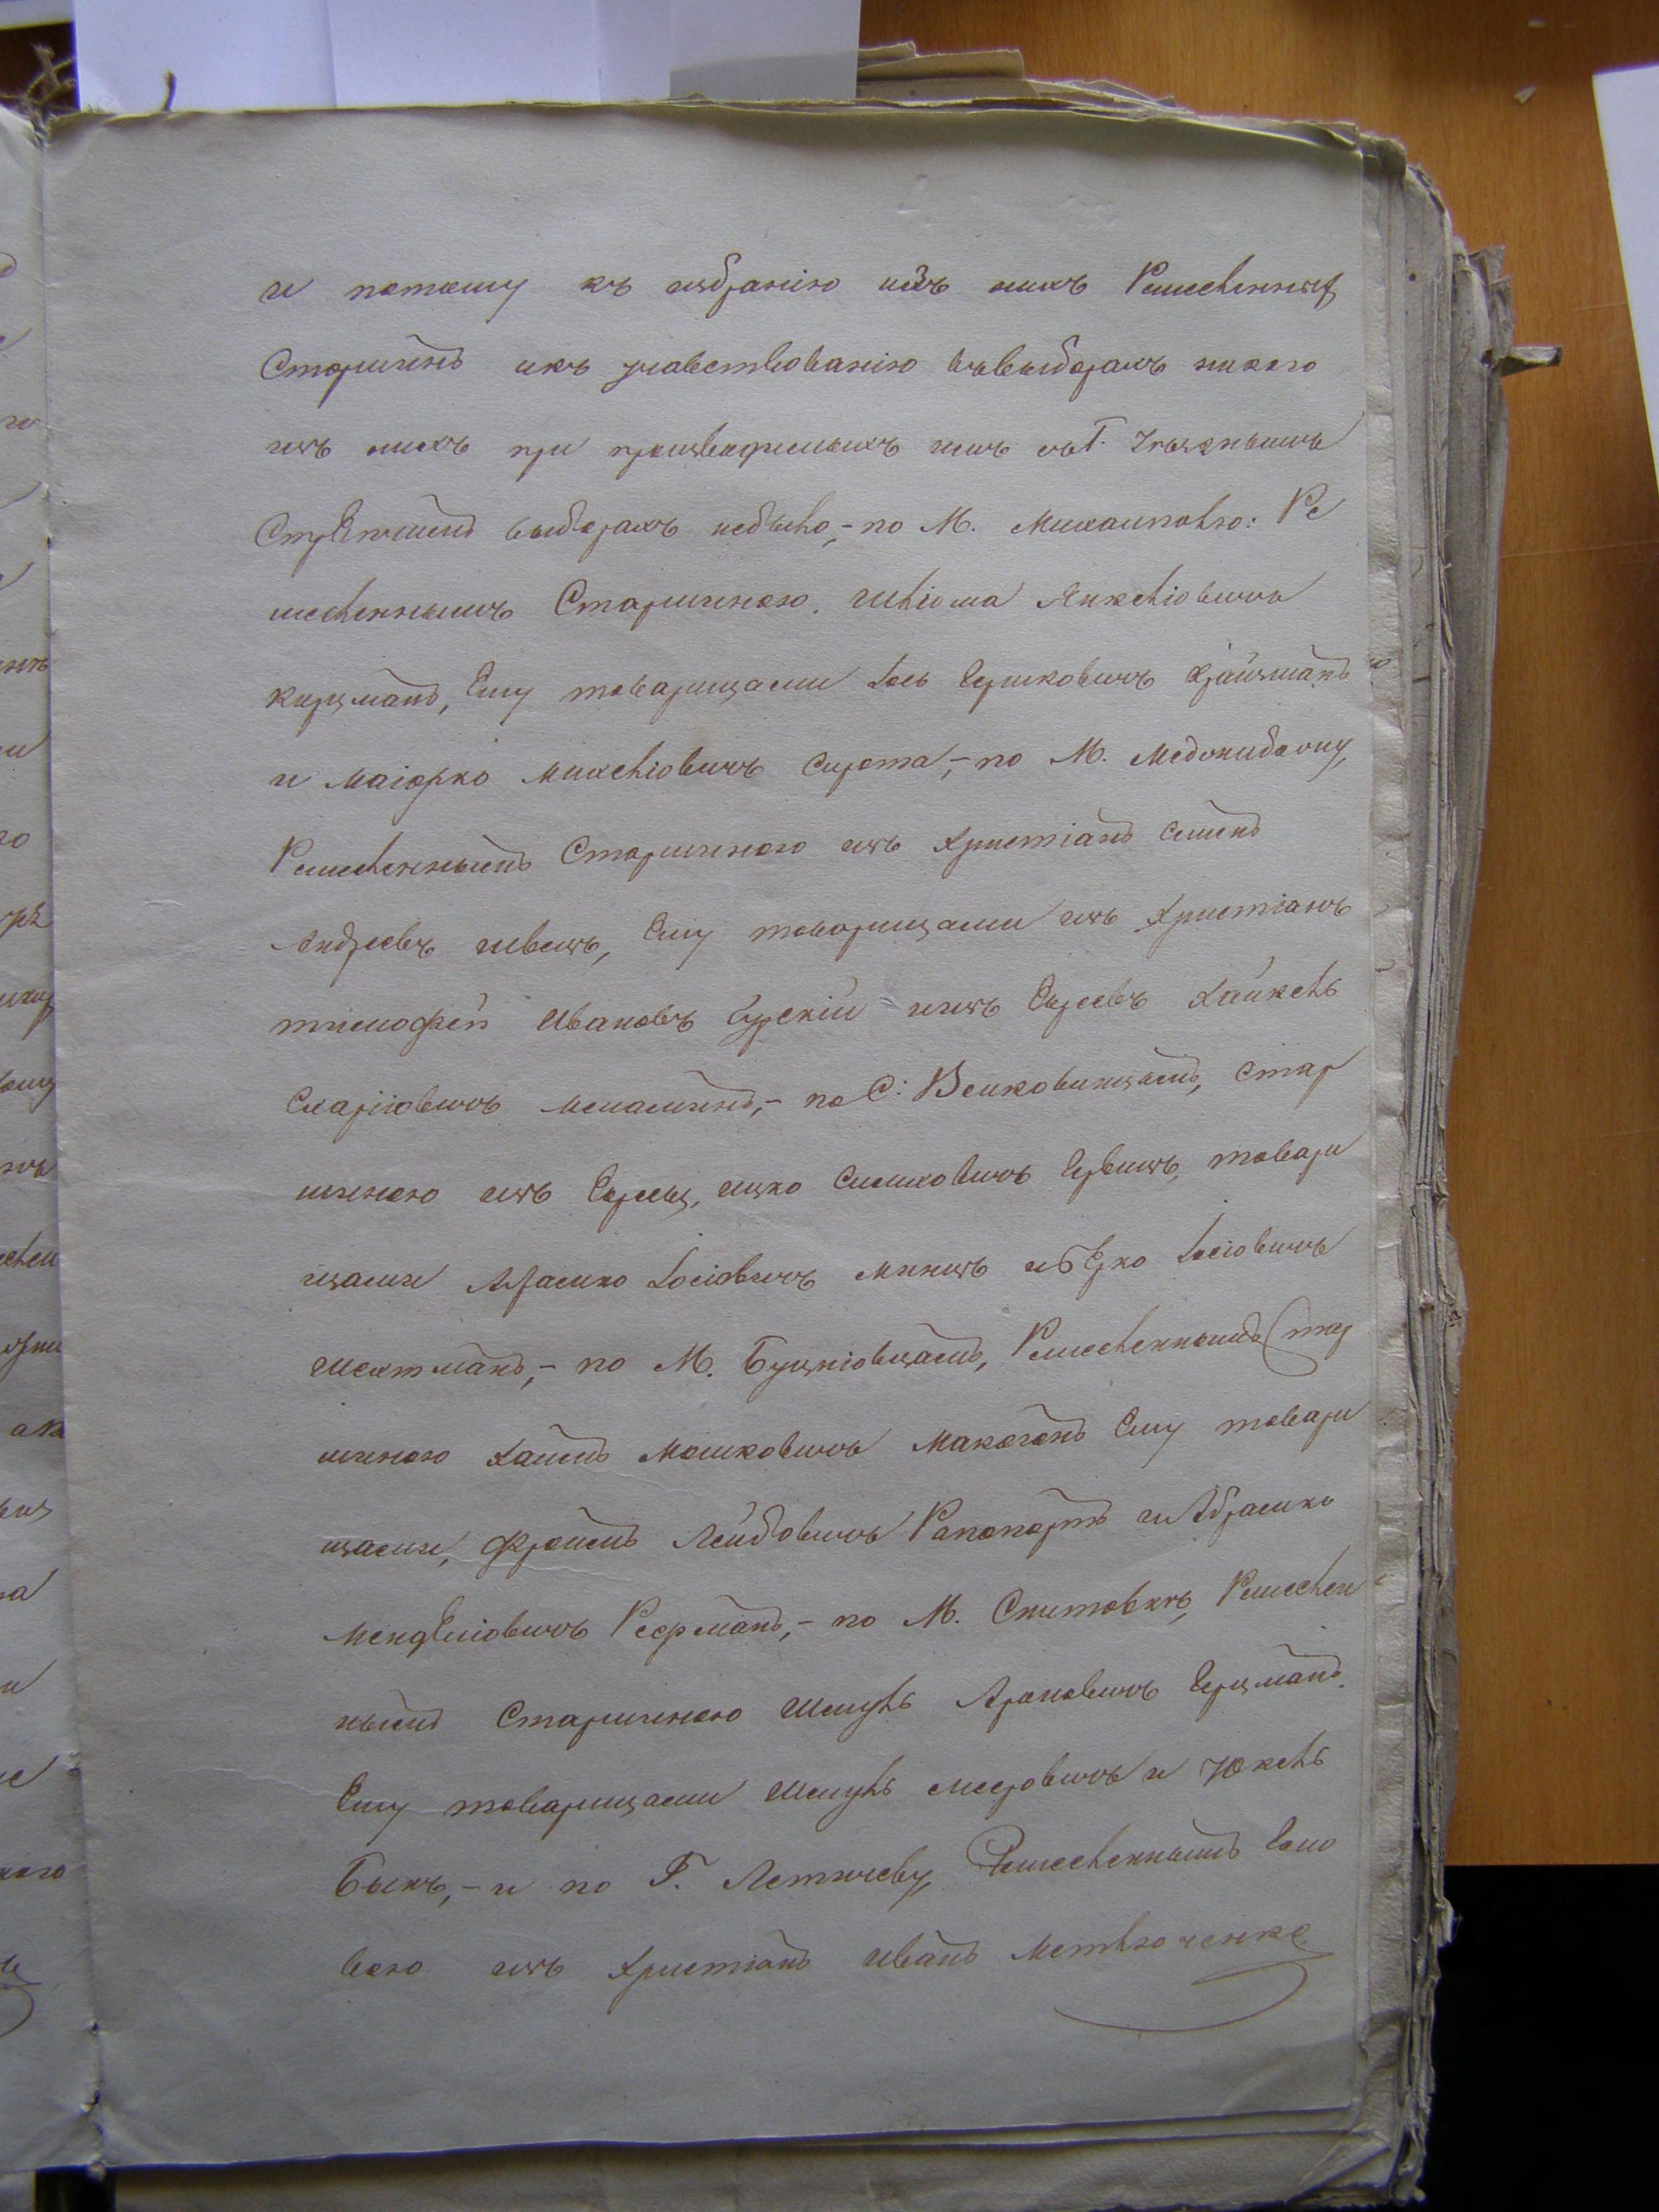 и потому къ избранію изъ нихъ Ремесленных
Старшинъ икъ учавствованію въвыборахъ никого
изъ нихъ при производимыхъ имъ съГ. Уѣзднымъ
Стряпчимъ выборахъ небыло,- по М. Михалполю: Ре
месленнымъ Старшиною. Шліома Янкеліовичъ
Кирцманъ, Ему товарищами Іось Гершковичъ Крайзманъ
и Маіорко Михеліовичъ Сирота,- по М. Меджибожу,
Ремесленнымъ Старшиною изъ Христіанъ Семенъ
Андреевъ Швецъ, Ему товарищами изъ Христіанъ
тимофей Ивановъ Гурскій иизъ Евреевъ Хайкель
Схаріовичъ Меламинъ,- по С: Волковинцамъ, стар
шиною изъ Евреевъ, Ицко Симховичъ Гурвицъ, товари
щами Абрамко Іосіовичъ Минцъ иБерко Іосіовичъ
Шехтманъ,- по М. Буцніовцамъ, Ремесленнымъ Стар
шиною Хаимъ Мошковичъ Макогонъ Ему товари
щами, Фроимъ Лейбовичъ Рапопортъ и Абрамко
Менделіовичъ Рефманъ,- по М. Снитовкѣ, Ремеслен
нымъ Старшиною Шмуль Ароновичъ Герцманъ.
Ему товарищами Шмуль Меровичъ и Юкель
Быкъ,- и по Г. Летичеву, Ремесленнымъ Голо
вою изъ Христіанъ Иванъ Метлюченко